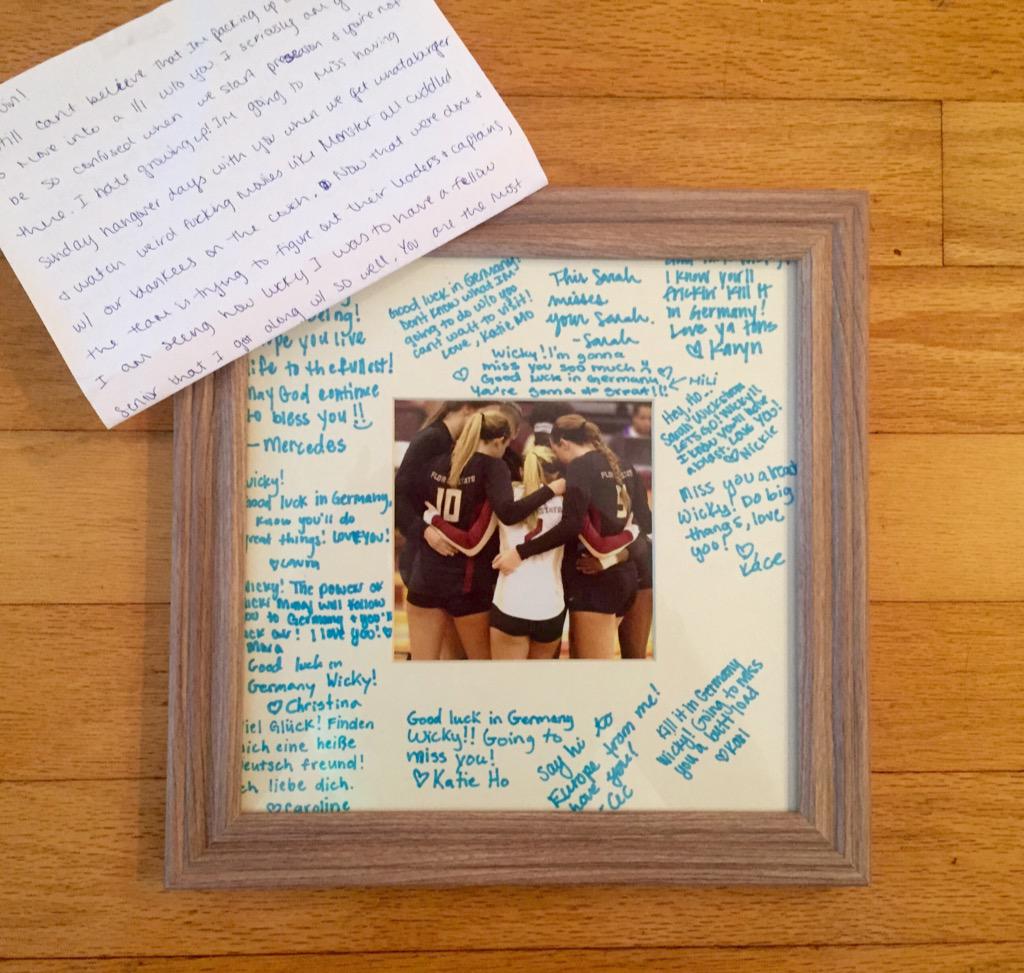 still can't believe that I'm packing up
move into a 1/1 w/o you. I seriously am
be so confused when we start preseason & you're not
there. I hate growing up! I'm going to miss having
Sunday hangover days with you when we get whataburger
& watch weird fucking movies like Monster all cuddled
w/ our blankees on the couch. Now that were done &
the team is trying to figure out their leaders & captains,
I am seeing how lucky I was to have a fellow
senior that I got along w/ so well. You are the most
being!
you live
life to the fullest!
may God continue
to bless you!!
- Mercedes
Good luck in Germany!
Don't know what I'm
going to do w/o you
can't wait to visit!
Love, Katie Mo
This Sarah
misses
your Sarah.
- Sarah
I know you'll
frickin' kill it
in Germany!
Love ya tons
♡ Karyn
Wicky! I'm gonna
miss you soo much
Good luck in Germany
You're gonna do great!!!
← Mili
Hey Ho...
Sarah Wickstrom
LETS GO! Wicky!!
I know you'll have
a blast. Love you!
♡ Nickie
Wicky!
Good luck in Germany,
know you'll do
great things! Love you!
♡ Laura
Miss you already
Wicky! Do big
thangs, love
yoo!
♡
Kace
Wicky! The power of
will follow
you to Germany & you'll
! I love you! ♡
Mara
Good luck in
Germany Wicky!
♡ Christina
iel Glück! Finden
ich eine heiße
eutsch freund!
ch liebe dich.
♡ Caroline
Good luck in Germany
Wicky!! Going to
miss you!
♡ Katie Ho
Say hi to
Europe from me!
have fun!
- CeC
Kill it in Germany
Wicky! Going to miss
you a butt load
♡ Kail
FLOR STATE
10
STATE